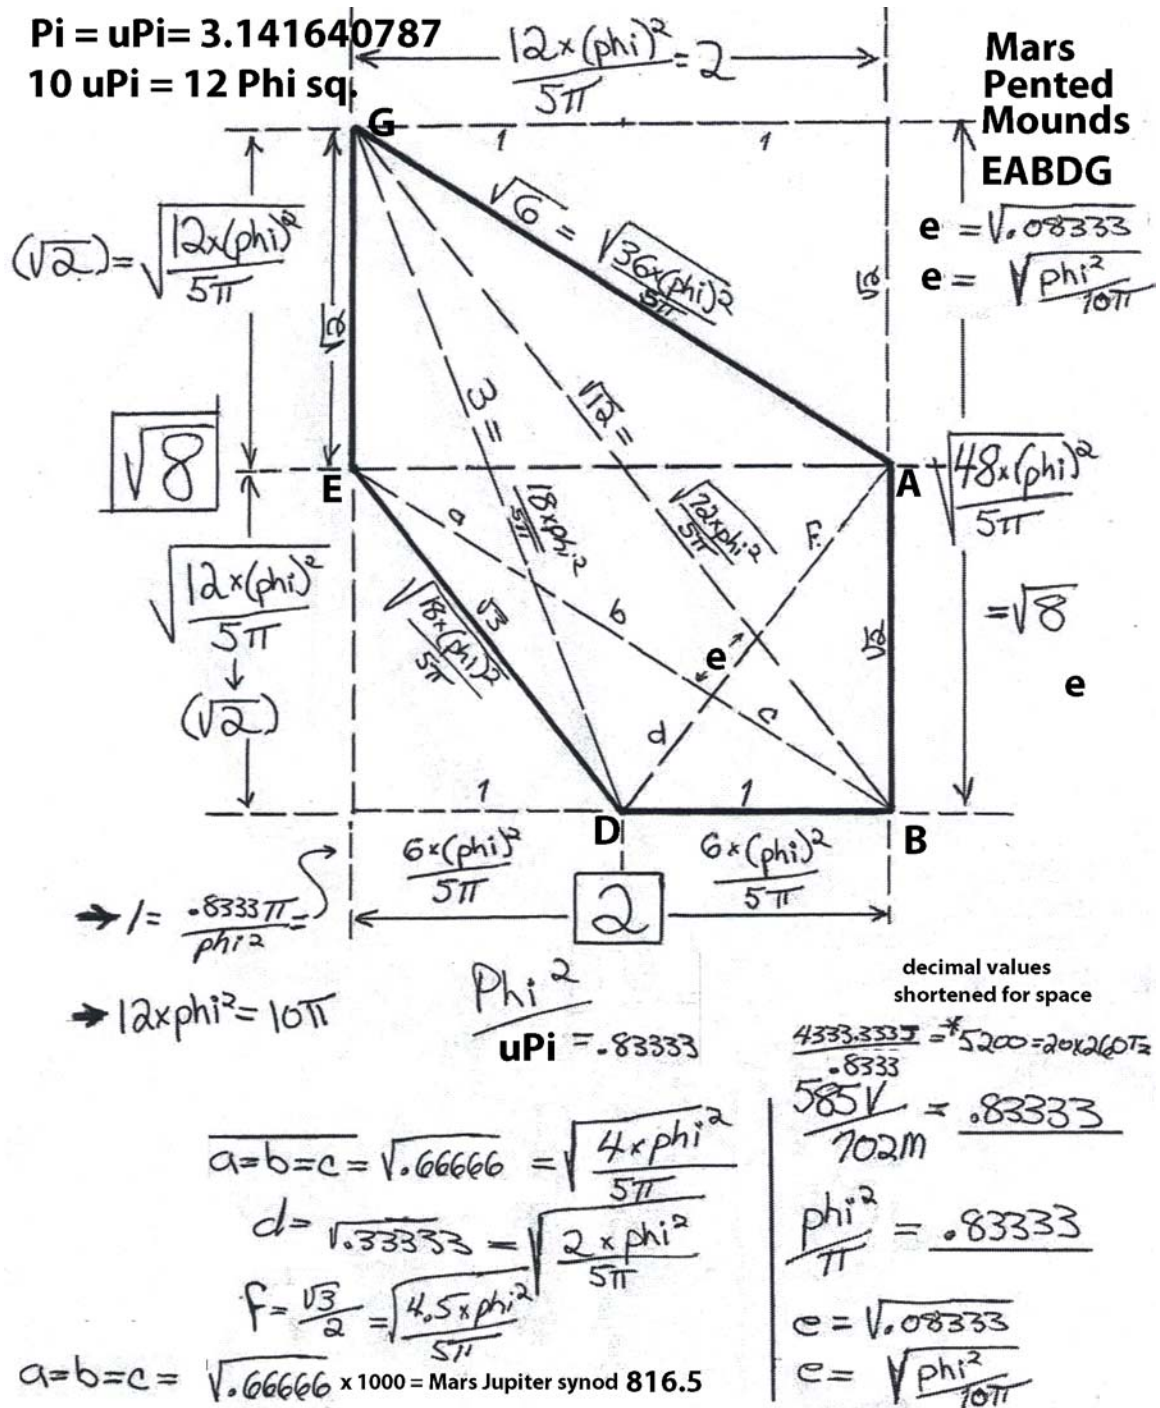 Pi = uPi= 3.141640787
10 uPi = 12 Phi sq.
12×(phi)²/5π = 2
Mars
Pented
Mounds
EABDG
G
1
1
e = √.08333
e = √phi²/10π
(√2) = √12×(phi)²/5π
√6 = √36×(phi)²/5π
√2
√2
√8
3 = 18×phi²/5π
√12 = √72×phi²/5π
E
A
√48×(phi)²/5π
= √8
a
F.
b
√2
e
e
c
d
√12×(phi)²/5π
(√2)
√3
√18×(phi)²/5π
1
1
D
B
6×(phi)²/5π
6×(phi)²/5π
2
➔ 1= .8333π/phi² =
➔ 12×phi²=10π
Phi²/uPi = .83333
decimal values
shortened for space
4333.333J/.8333 = *5200=20×260Tz
585V/702M = .83333
phi²/π = .83333
a=b=c= √.66666 = √4×phi²/5π
d= √.33333 = √2×phi²/5π
f= √3/2 = √4.5×phi²/5π
e= √.08333
e= √phi²/10π
a=b=c= √.66666 x 1000 = Mars Jupiter synod 816.5